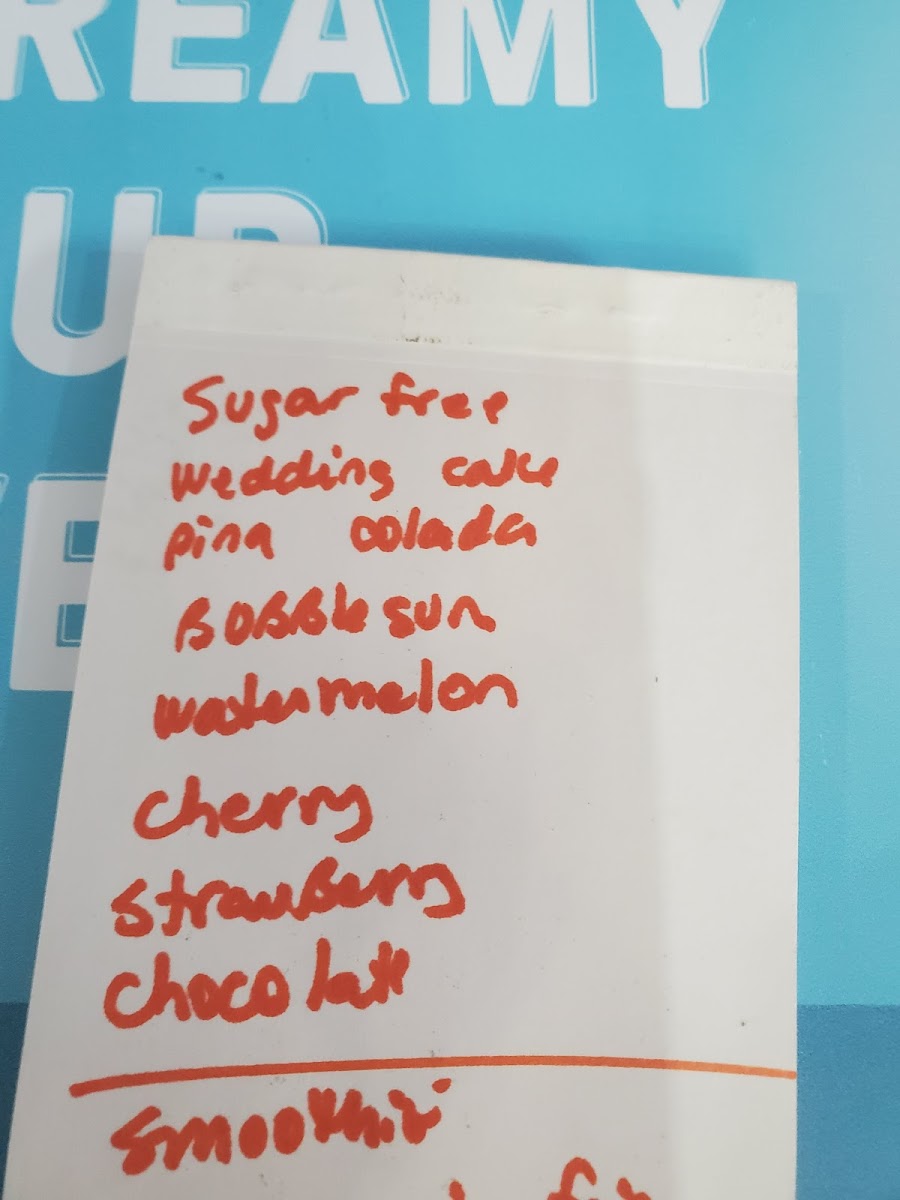 REAMY
UP
E
Sugar free
wedding cake
pina colada
BOBBle sum
watermelon
cherry
strawBerry
chocolate
smoothie